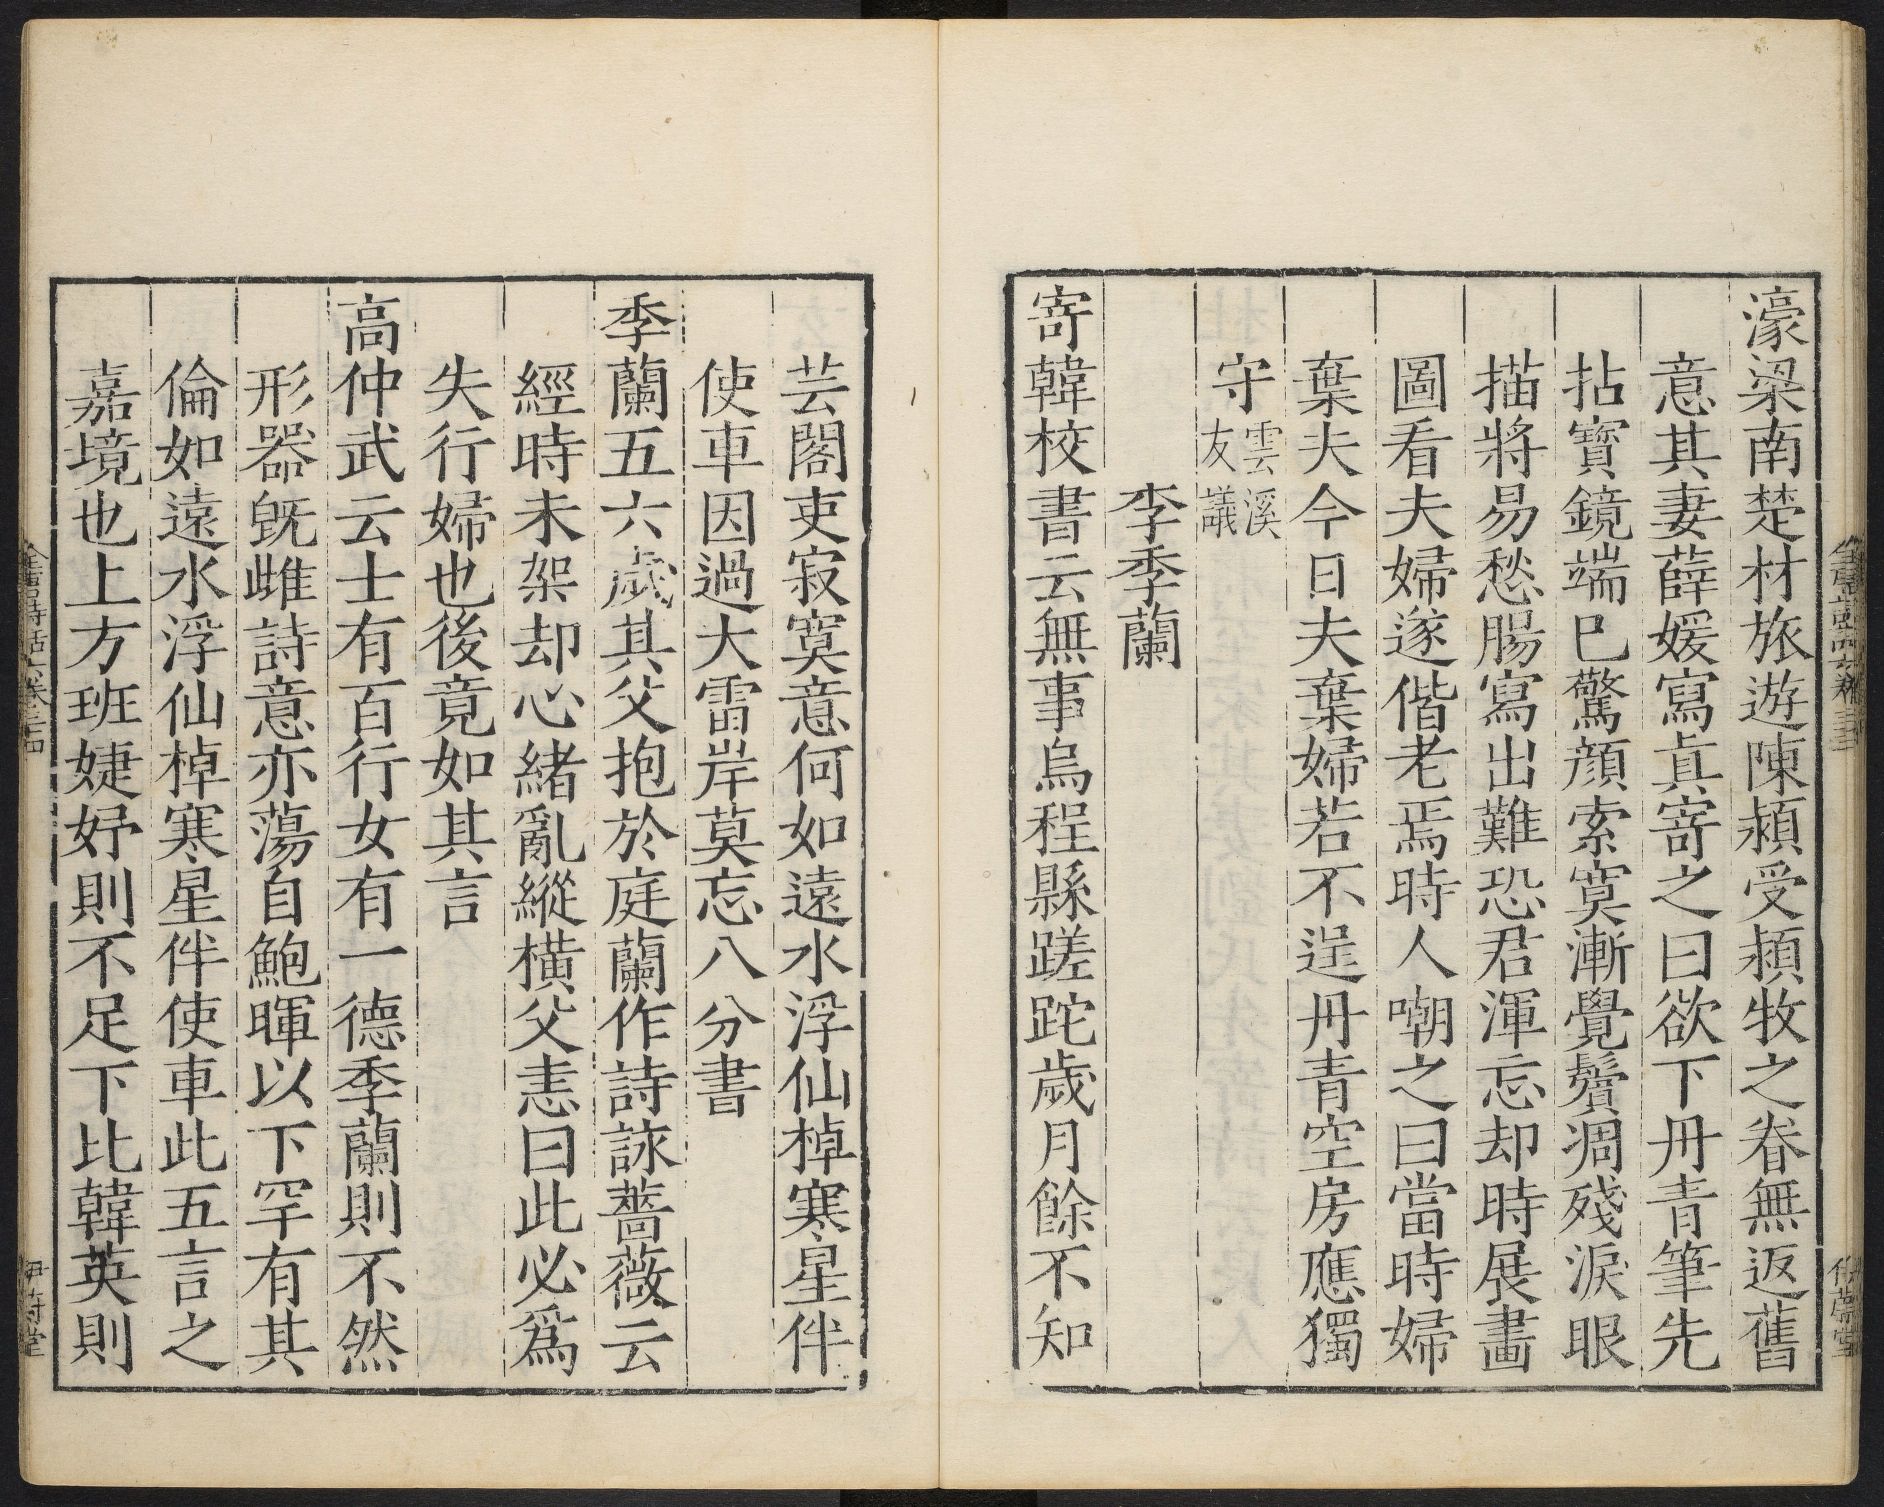 濠梁南楚材旅遊陳潁受潁牧之眷無返舊
意其妻薛媛寫真寄之曰欲下丹青筆先
拈寶鏡端已驚顏索寞漸覺鬢凋殘淚眼
描將易愁腸寫出難恐君渾忘却時展畫
圖看夫婦遂偕老焉時人嘲之曰當時婦
棄夫今日夫棄婦若不逞丹青空房應獨
守雲溪友議
李季蘭
寄韓校書云無事烏程縣蹉跎歲月餘不知
芸閣吏寂寞意何如遠水浮仙棹寒星伴
使車因過大雷岸莫忘八分書
季蘭五六歲其父抱於庭蘭作詩詠薔薇云
經時未架却心緒亂縱橫父恚曰此必爲
失行婦也後竟如其言
高仲武云士有百行女有一德季蘭則不然
形器旣雌詩意亦蕩自鮑暉以下罕有其
倫如遠水浮仙棹寒星伴使車此五言之
嘉境也上方班婕妤則不足下比韓英則